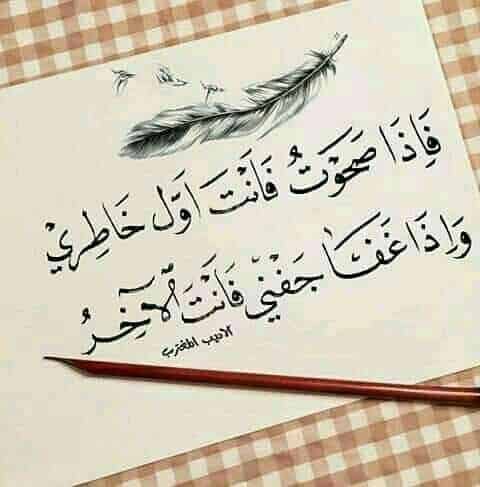 فَإِذَا صَحَوْتُ فَأَنْتَ اَوَّل خَاطِرِيْ
وَإِذَا غَفَا جَفْنِيْ فَانْتَ الآخِرُ
الاديب المغترب